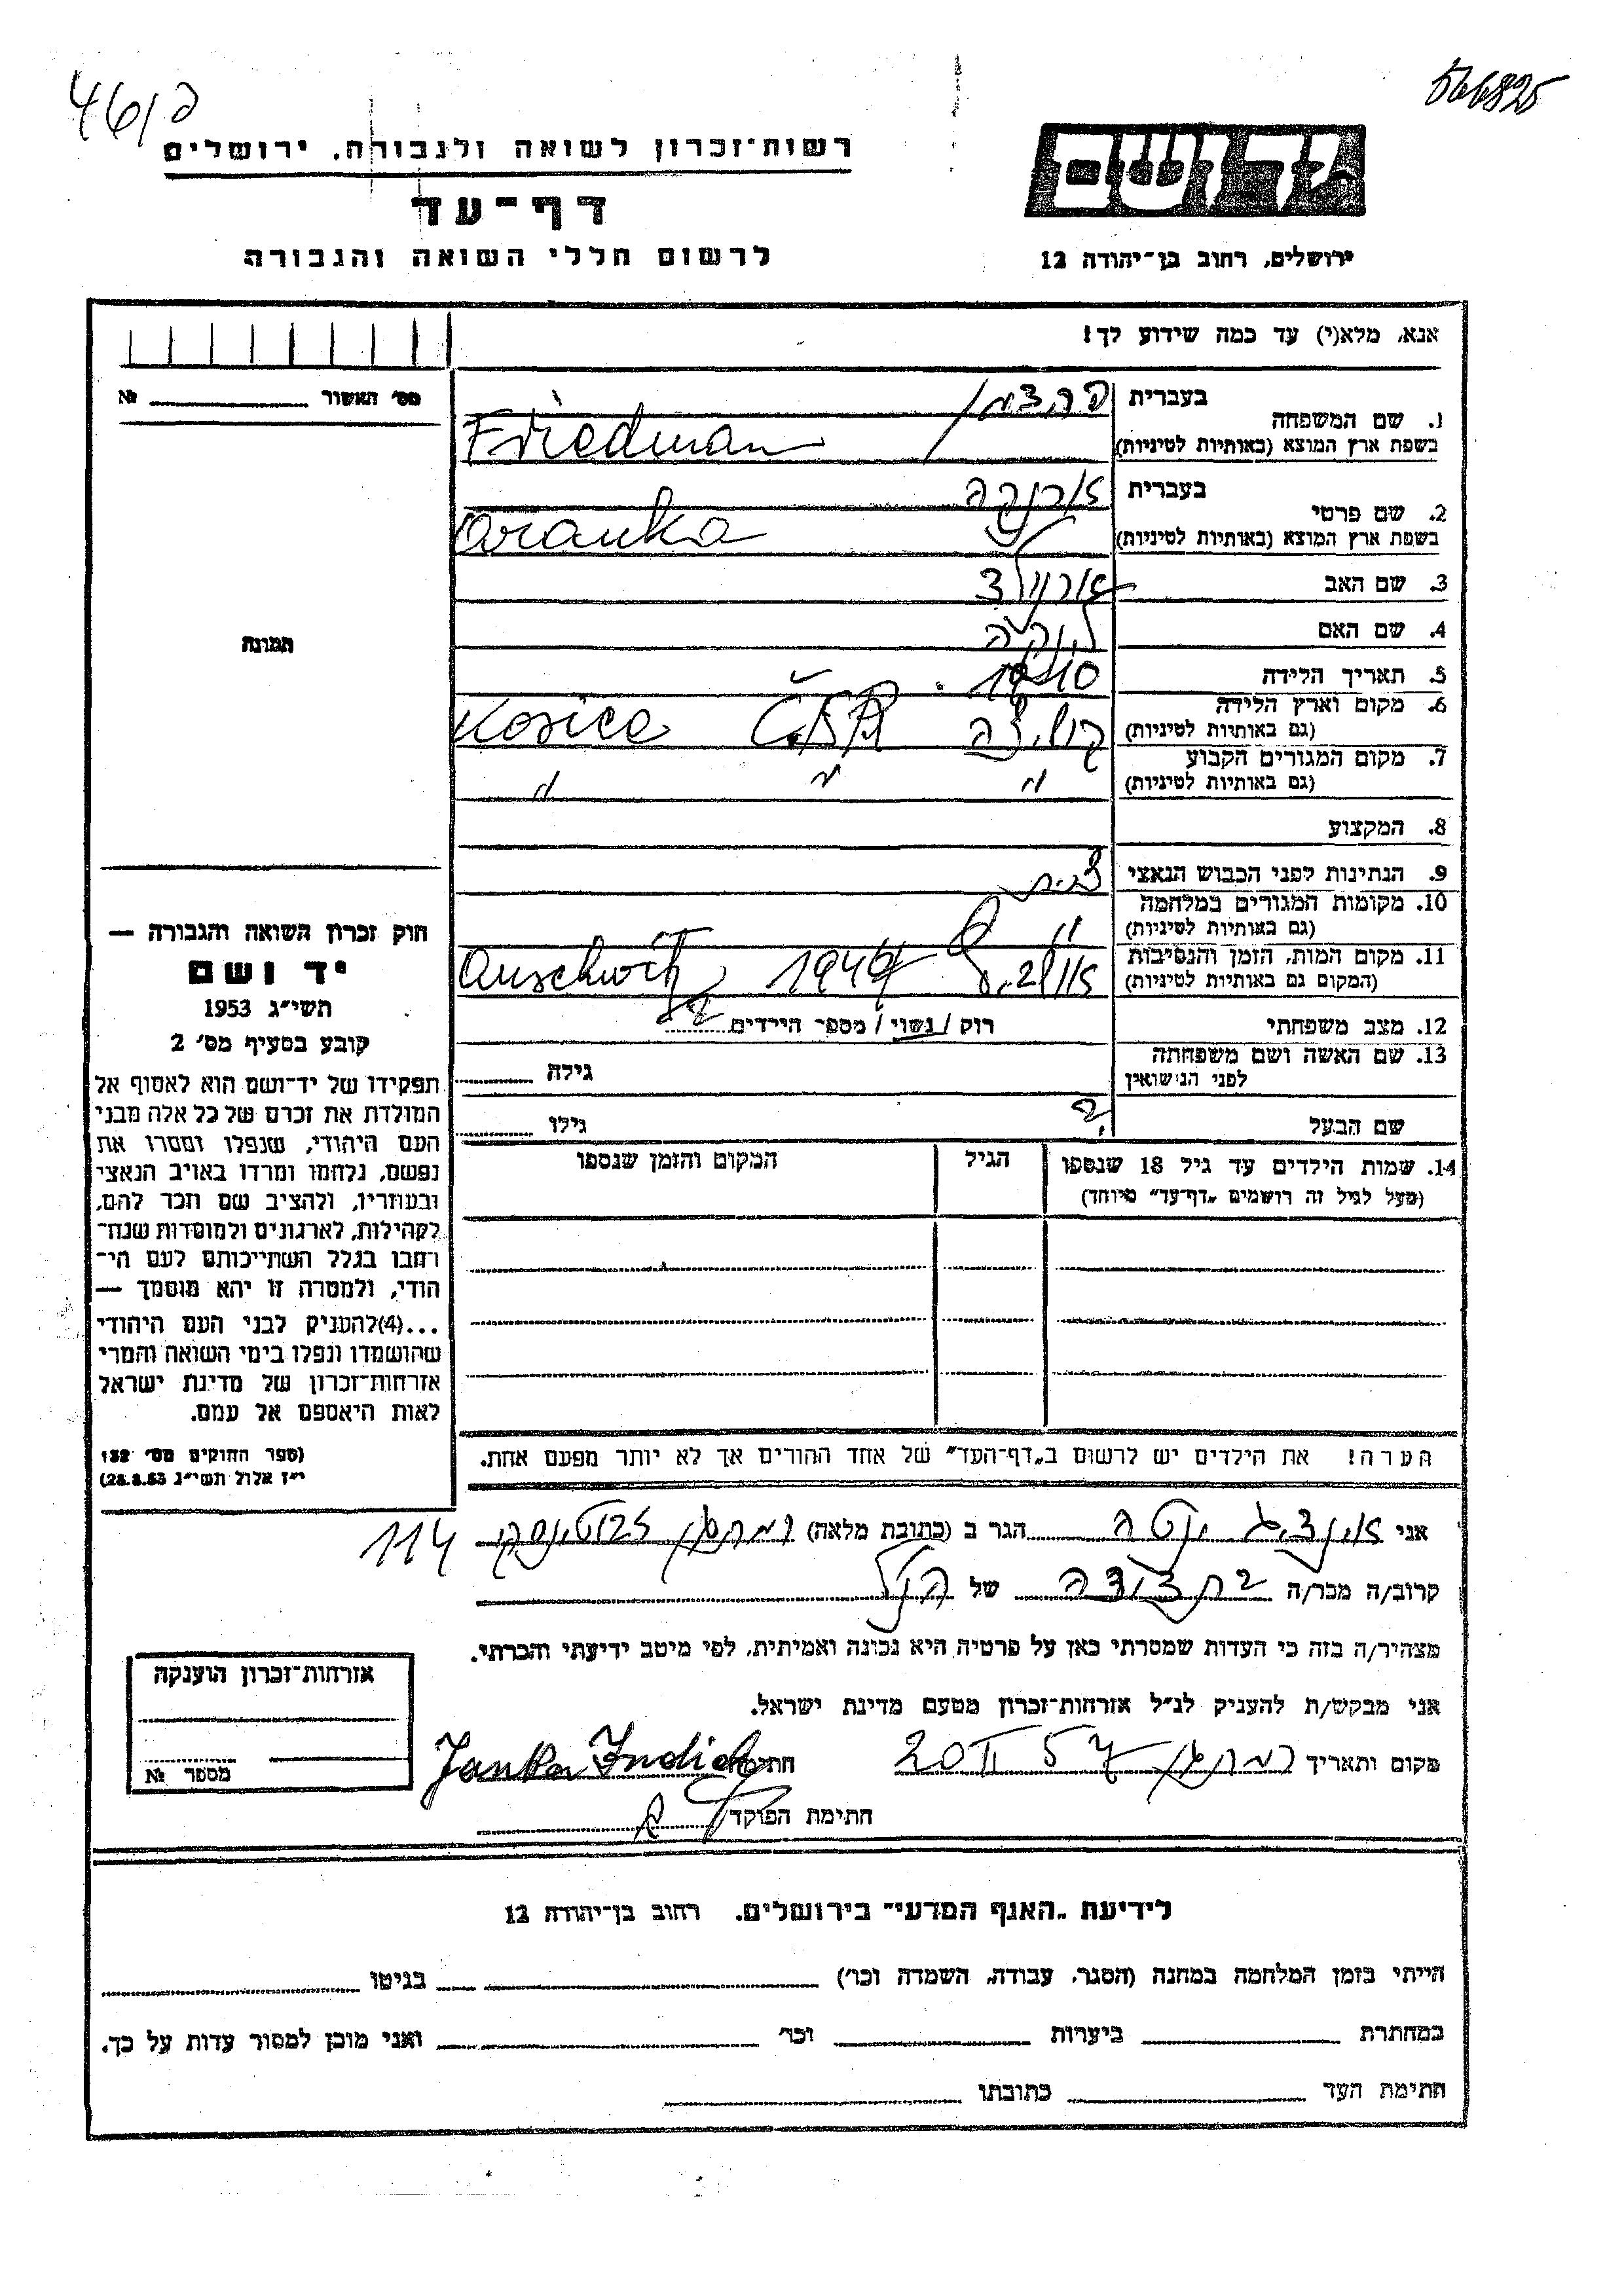 46/פ
566825
רשות־זכרון לשואה ולגבורה, ירושלים
דף־עד
לרשום חללי השואה והגבורה
יד ושם
ירושלים, רחוב בן־יהודה 12
אנא, מלא(י) עד כמה שידוע לך!
מס' האשור № 
תמונה
חוק זכרון השואה והגבורה —
יד ושם
תשי״ג 1953
קובע בסעיף מס׳ 2
תפקידו של יד־ושם הוא לאסוף אל
המולדת את זכרם של כל אלה מבני
העם היהודי, שנפלו ומסרו את
נפשם, נלחמו ומרדו באויב הנאצי
ובעוזריו, ולהציב שם וזכר להם,
לקהילות, לארגונים ולמוסדות שנח־
רחבו בגלל השתייכותם לעם הי־
הודי, ולמטרה זו יהא מוסמך —
...(4)להעניק לבני העם היהודי
שהושמדו ונפלו בימי השואה והמרי
אזרחות־זכרון של מדינת ישראל
לאות היאספם אל עמם.
(ספר החוקים מס׳ 132
י״ז אלול תשי״ג 28.8.53)
1. שם המשפחה בעברית
Friedman
בשפת ארץ המוצא (באותיות לטיניות)
2. שם פרטי בעברית ארנקה
Aranka
בשפת ארץ המוצא (באותיות לטיניות)
3. שם האב ארנולד
4. שם האם
5. תאריך הלידה 1910
6. מקום וארץ הלידה קושיצה Č.S.R Kosice
(גם באותיות לטיניות)
7. מקום המגורים הקבוע " " "
(גם באותיות לטיניות)
8. המקצוע
9. הנתינות לפני הכבוש הנאצי
10. מקומות המגורים במלחמה
(גם באותיות לטיניות)
11. מקום המות, הזמן והנסיבות 1944 Auschwitz
(המקום גם באותיות לטיניות)
12. מצב משפחתי רוק / נשוי / מספר הילדים ?
13. שם האשה ושם משפחתה גילה
לפני הנישואין
שם הבעל ? גילו
14. שמות הילדים עד גיל 18 שנספו הגיל המקום והזמן שנספו
(מעל לגיל זה רושמים „דף־עד״ מיוחד)
הערה! את הילדים יש לרשום ב„דף־העד״ של אחד ההורים אך לא יותר מפעם אחת.
אני אינדיג יוטה הגר ב (כתובת מלאה) רמתגן ז'בוטינסקי 114
קרוב/ה מכר/ה בת דודה של הנ״ל
מצהיר/ה בזה כי העדות שמסרתי כאן על פרטיה היא נכונה ואמיתית, לפי מיטב ידיעתי והכרתי.
אני מבקש/ת להעניק לנ״ל אזרחות־זכרון מטעם מדינת ישראל.
מקום ותאריך רמתגן 20 II 57 חתימה Janka Indich
חתימת הפוקד
אזרחות־זכרון הוענקה
מספר №
לידיעת „האגף המדעי״ בירושלים, רחוב בן־יהודה 12
הייתי בזמן המלחמה במחנה (הסגר, עבודה, השמדה וכו׳) בגיטו
במחתרת ביערות וכו׳ ואני מוכן למסור עדות על כך.
חתימת העד כתובתו